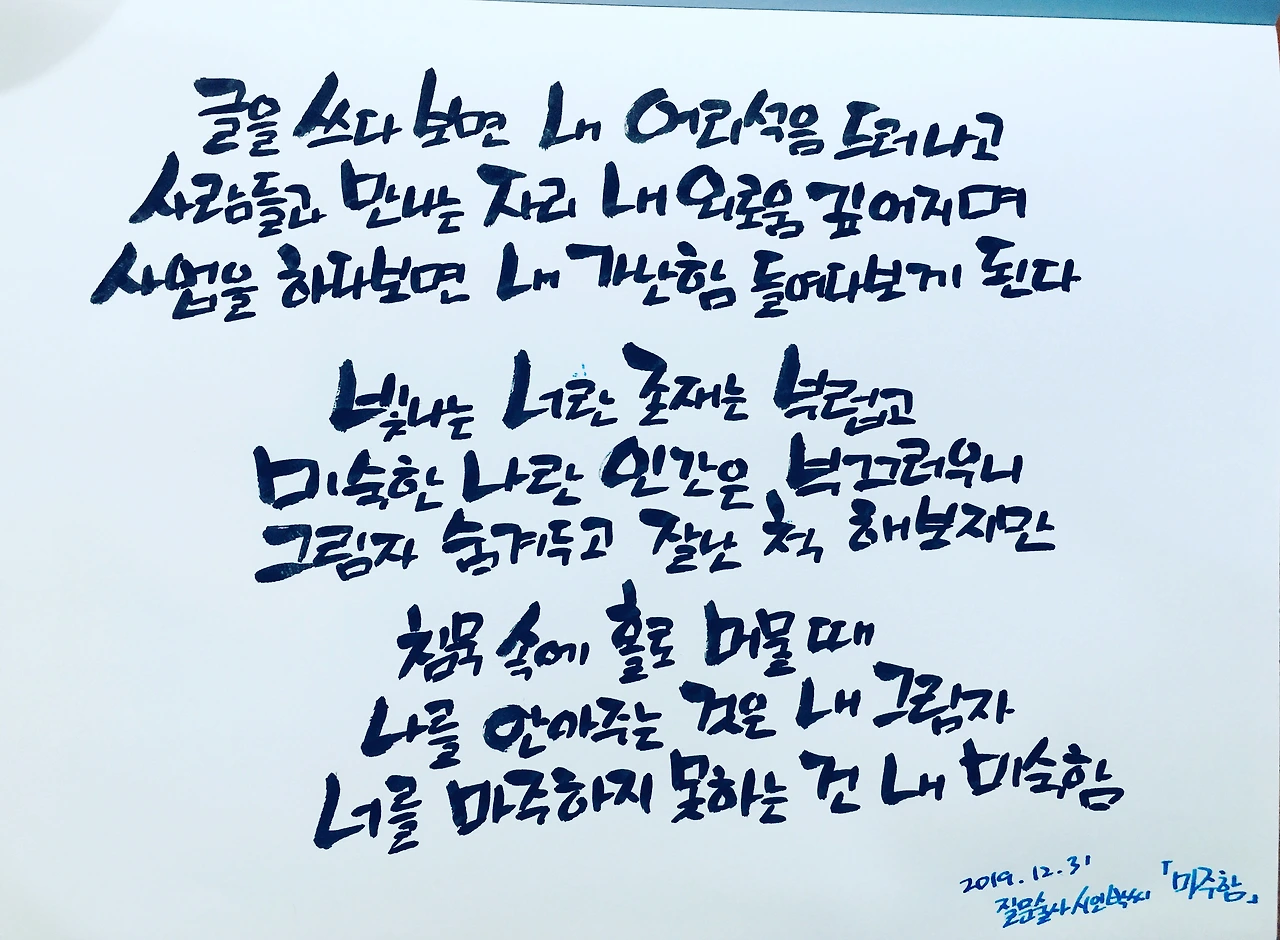 글을 쓰다 보면 내 어리석음 드러나고
사람들과 만나는 자리 내 외로움 깊어지며
사업을 하다보면 내 가난함 들여다보게 된다
빛나는 너란 존재는 부럽고
미숙한 나란 인간은 부끄러우니
그림자 숨겨두고 잘난 척 해보지만
침묵 속에 홀로 머물 때
나를 안아주는 것은 내 그림자
너를 마주하지 못하는 건 내 미숙함
2019.12.31
질문술사 시인박씨 「마주함」